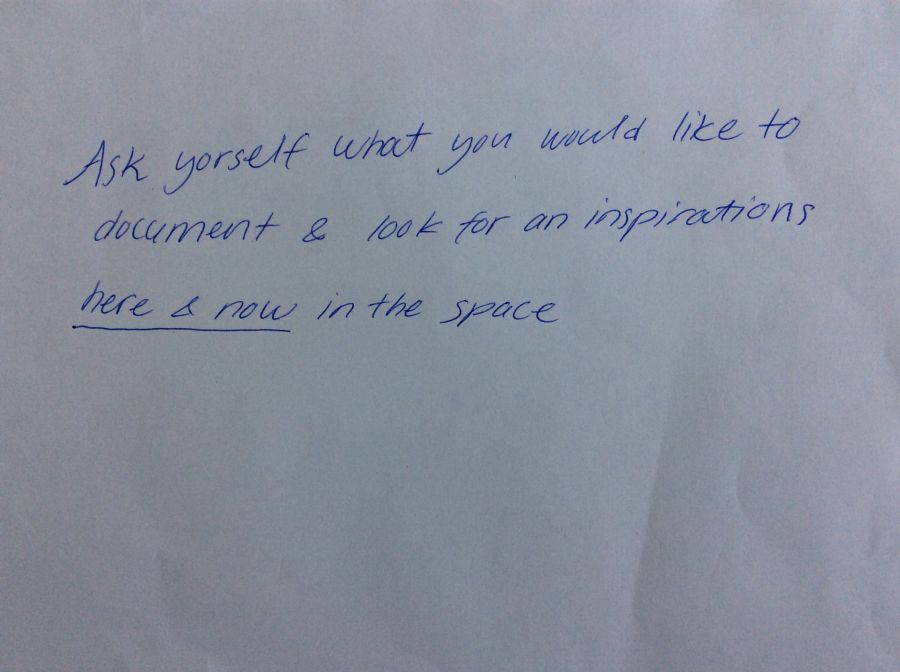 Ask yorself what you would like to
document & look for an inspirations
here & now in the space